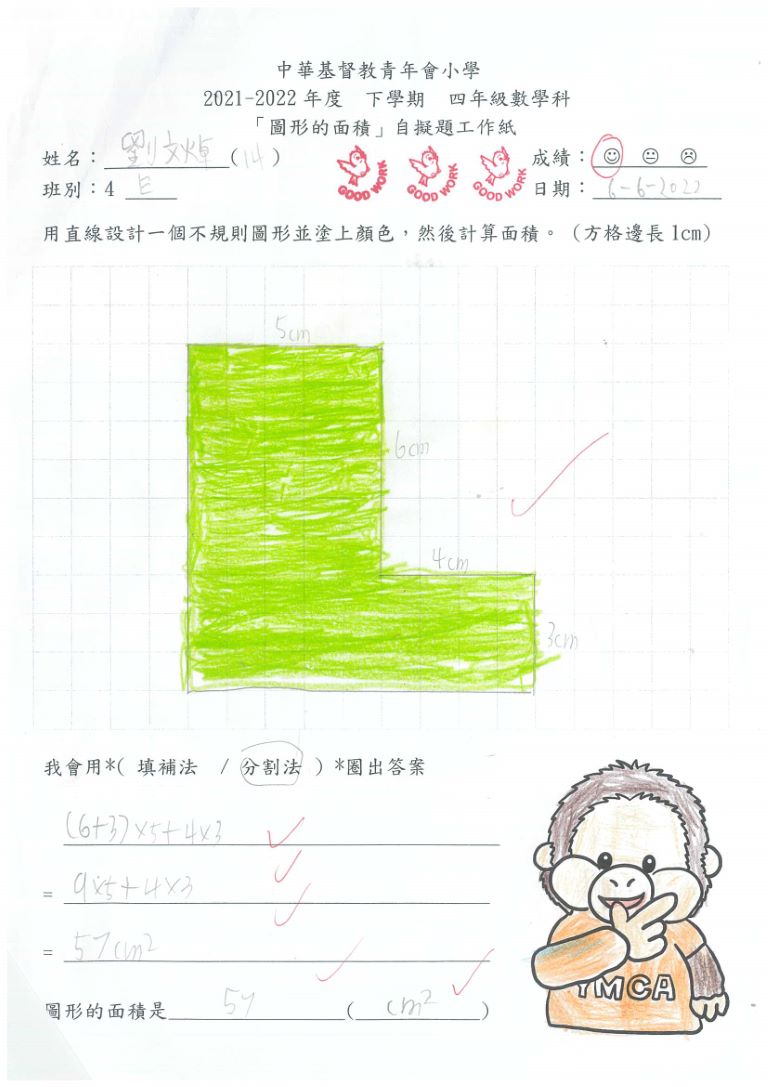 中華基督教青年會小學
2021-2022 年度 下學期 四年級數學科
「圖形的面積」自擬題工作紙
姓名：劉文焯(14) 成績：
GOOD WORK GOOD WORK GOOD WORK
班別：4 E 日期：6-6-2022
用直線設計一個不規則圖形並塗上顏色，然後計算面積。(方格邊長 1cm)
5cm
6cm
4cm
3cm
我會用*( 填補法 / 分割法 ) *圈出答案
(6+3)×5+4×3
= 9×5+4×3
= 57cm²
圖形的面積是 57 (cm²)
YMCA